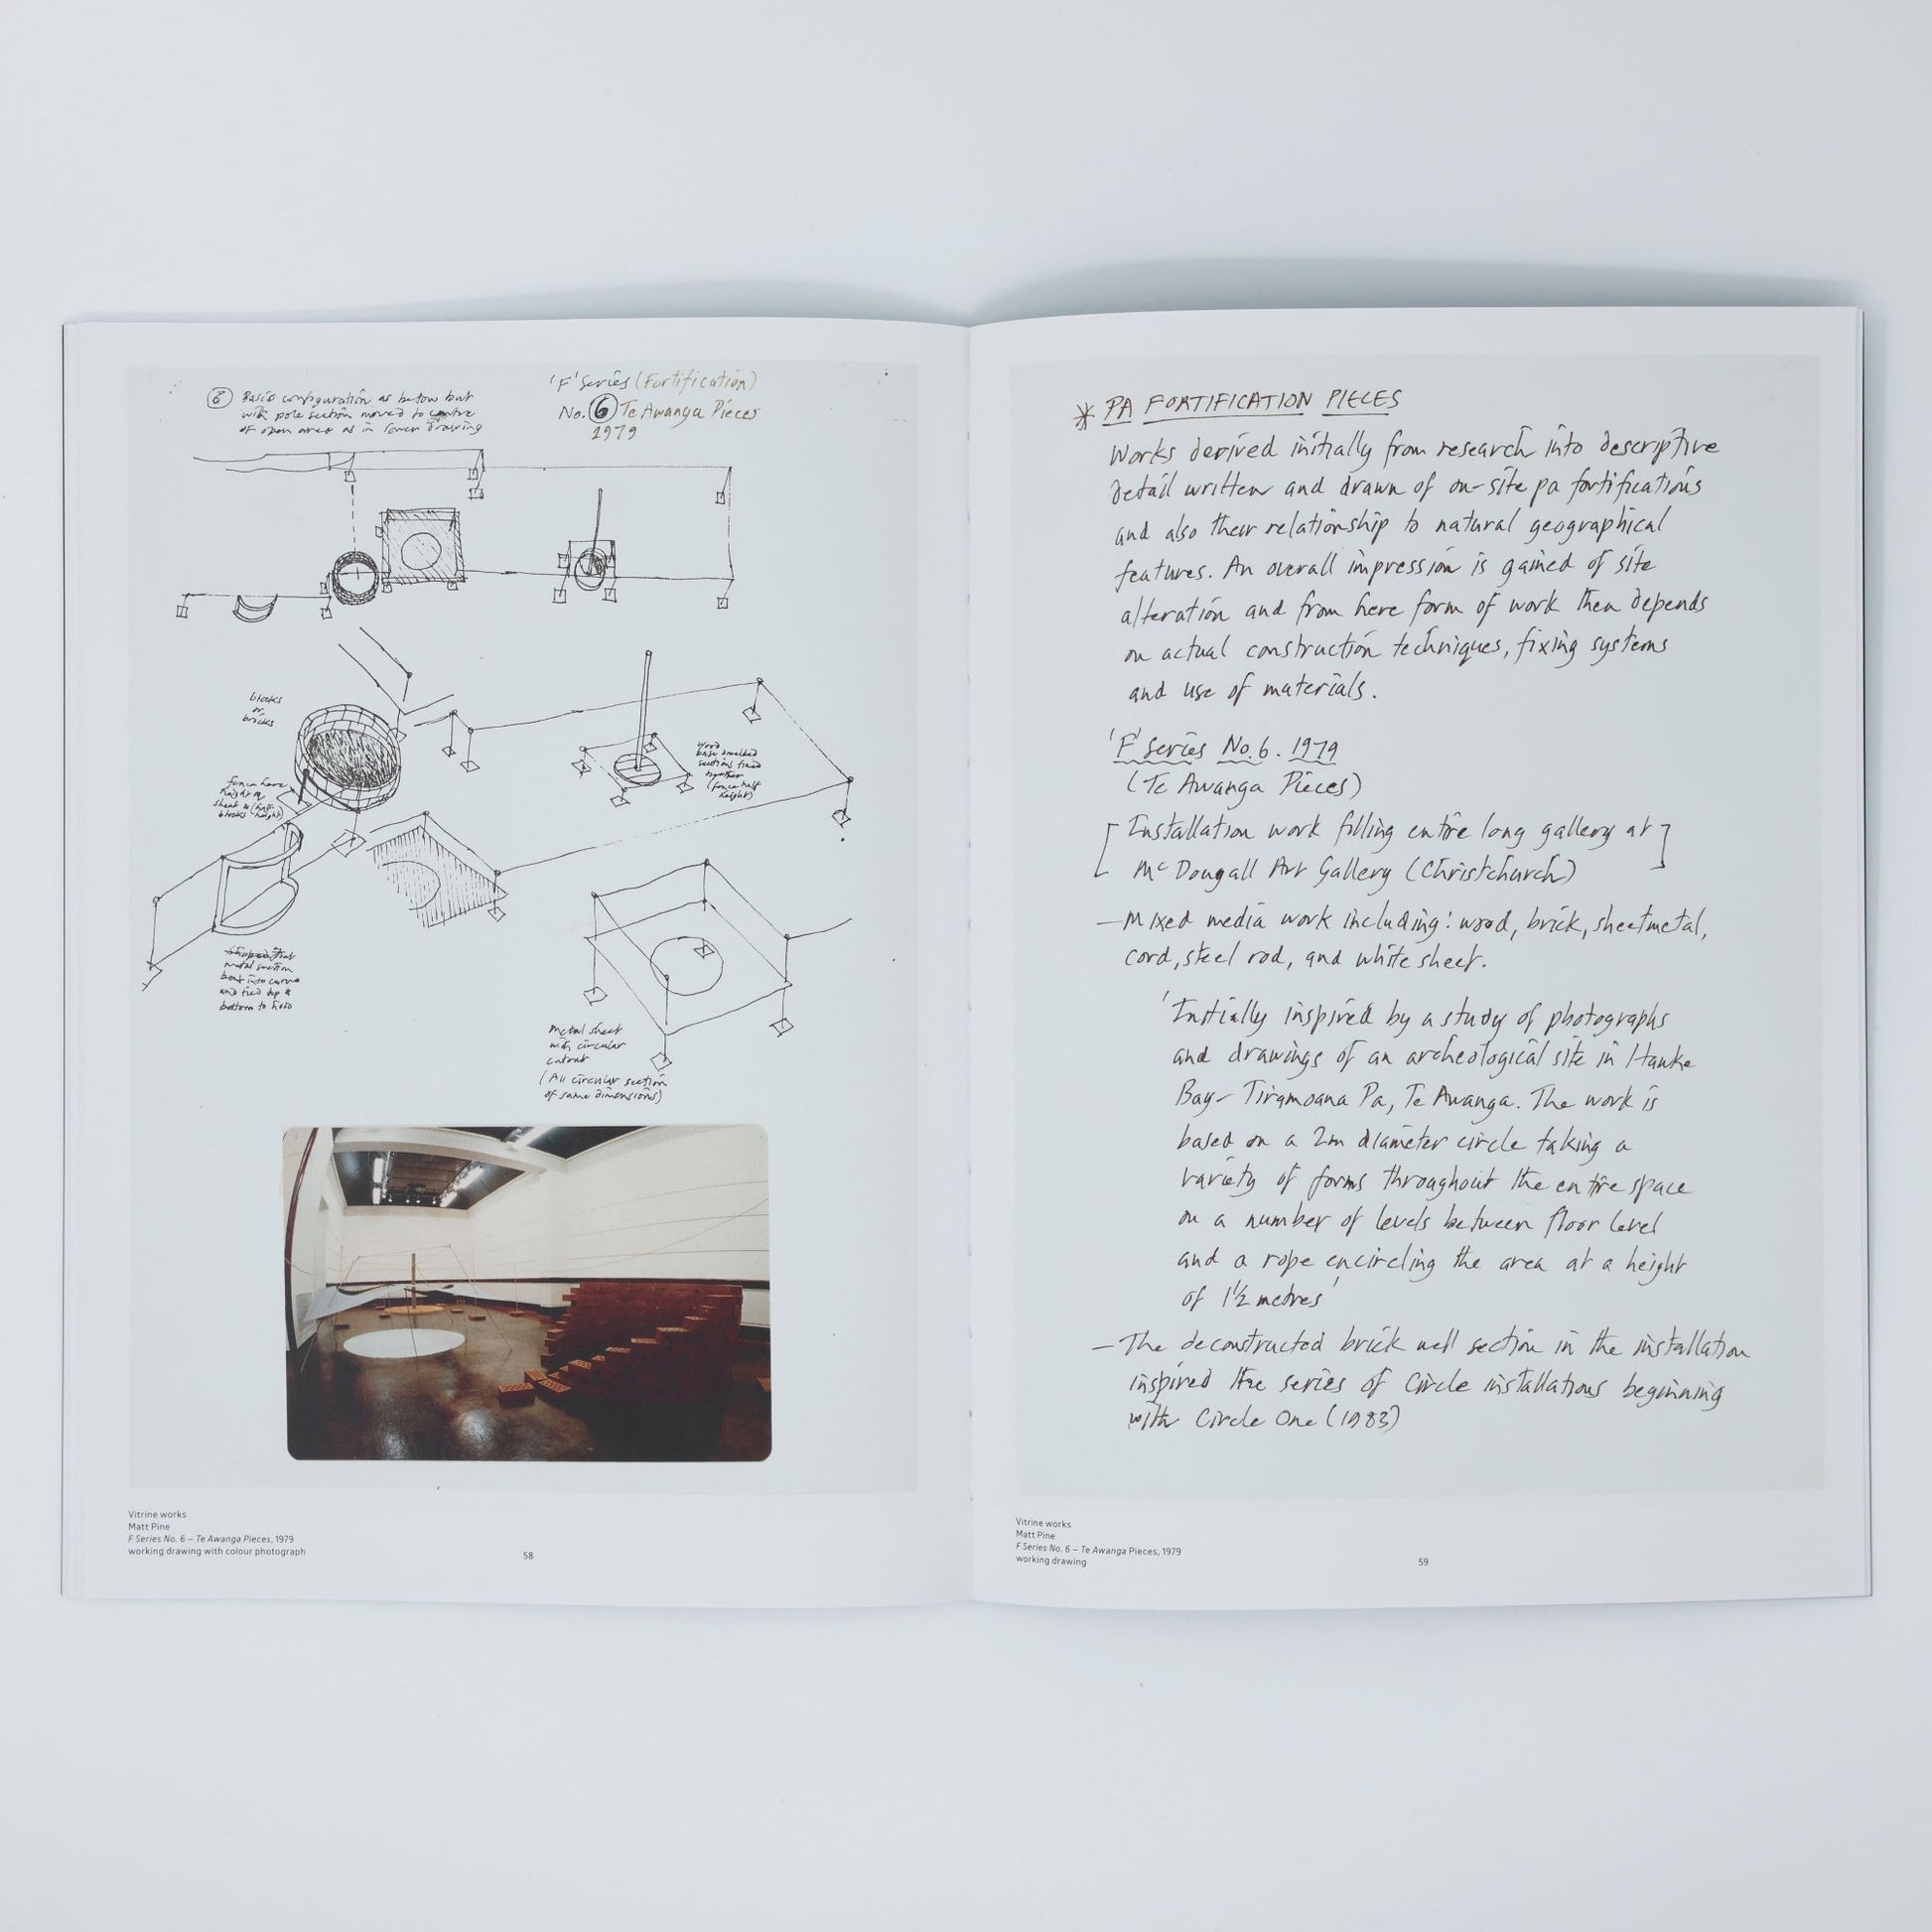 8 Basic configuration as below but
with pole section moved to centre
of open area as in lower drawing
'F' Series (Fortification)
No. 6 Te Awanga Pieces
1979
blocks
or
bricks
fence here
height of
sheet & (half
blocks height)
Wood
base moulded
sections fixed
together
(fence half
height)
metal section
bent into curve
and tied top &
bottom to hold
Metal sheet
with circular
cutout
(All circular section
of same dimensions)
Vitrine works
Matt Pine
F Series No. 6 – Te Awanga Pieces, 1979
working drawing with colour photograph
58
* PA FORTIFICATION PIECES
Works derived initially from research into descriptive
detail written and drawn of on-site pa fortifications
and also their relationship to natural geographical
features. An overall impression is gained of site
alteration and from here form of work then depends
on actual construction techniques, fixing systems
and use of materials.
'F' Series No. 6. 1979
(Te Awanga Pieces)
[Installation work filling entire long gallery at
McDougall Art Gallery (Christchurch)]
– Mixed media work including: wood, brick, sheetmetal,
cord, steel rod, and white sheet.
'Initially inspired by a study of photographs
and drawings of an archeological site in Hawke
Bay – Tiramoana Pa, Te Awanga. The work is
based on a 2m diameter circle taking a
variety of forms throughout the entire space
on a number of levels between floor level
and a rope encircling the area at a height
of 1½ metres'
– The deconstructed brick well section in the installation
inspired the series of Circle installations beginning
with Circle One (1983)
Vitrine works
Matt Pine
F Series No. 6 – Te Awanga Pieces, 1979
working drawing
59